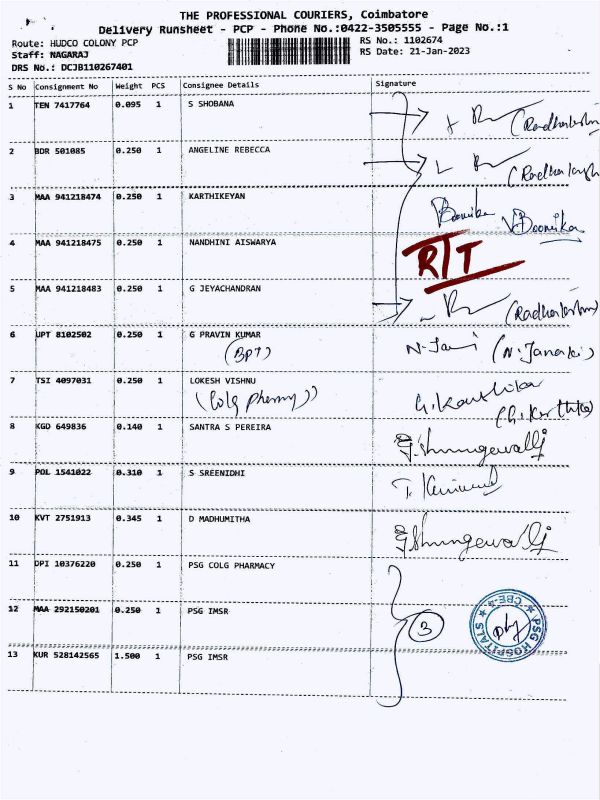 THE PROFESSIONAL COURIERS, Coimbatore
Delivery Runsheet - PCP - Phone No.:0422-3505555 - Page No.:1
Route: HUDCO COLONY PCP
RS No.: 1102674
Staff: NAGARAJ
RS Date: 21-Jan-2023
DRS No.: DCJB110267401
S No Consignment No Weight PCS Consignee Details Signature
1 TEN 7417764 0.095 1 S SHOBANA
2 BDR 501085 0.250 1 ANGELINE REBECCA
3 MAA 941218474 0.250 1 KARTHIKEYAN Boomika Boomika
4 MAA 941218475 0.250 1 NANDHINI AISWARYA
RTT
5 MAA 941218483 0.250 1 G JEYACHANDRAN
6 UPT 8102502 0.250 1 G PRAVIN KUMAR
(BPT) (N. Janaki)
7 TSI 4097031 0.250 1 LOKESH VISHNU
8 KGD 649836 0.140 1 SANTRA S PEREIRA
9 POL 1541022 0.310 1 S SREENIDHI
10 KVT 2751913 0.345 1 D MADHUMITHA
11 DPI 10376220 0.250 1 PSG COLG PHARMACY
12 MAA 292150201 0.250 1 PSG IMSR
3
PSG HOSPITALS CBE-4
13 KUR 528142565 1.500 1 PSG IMSR